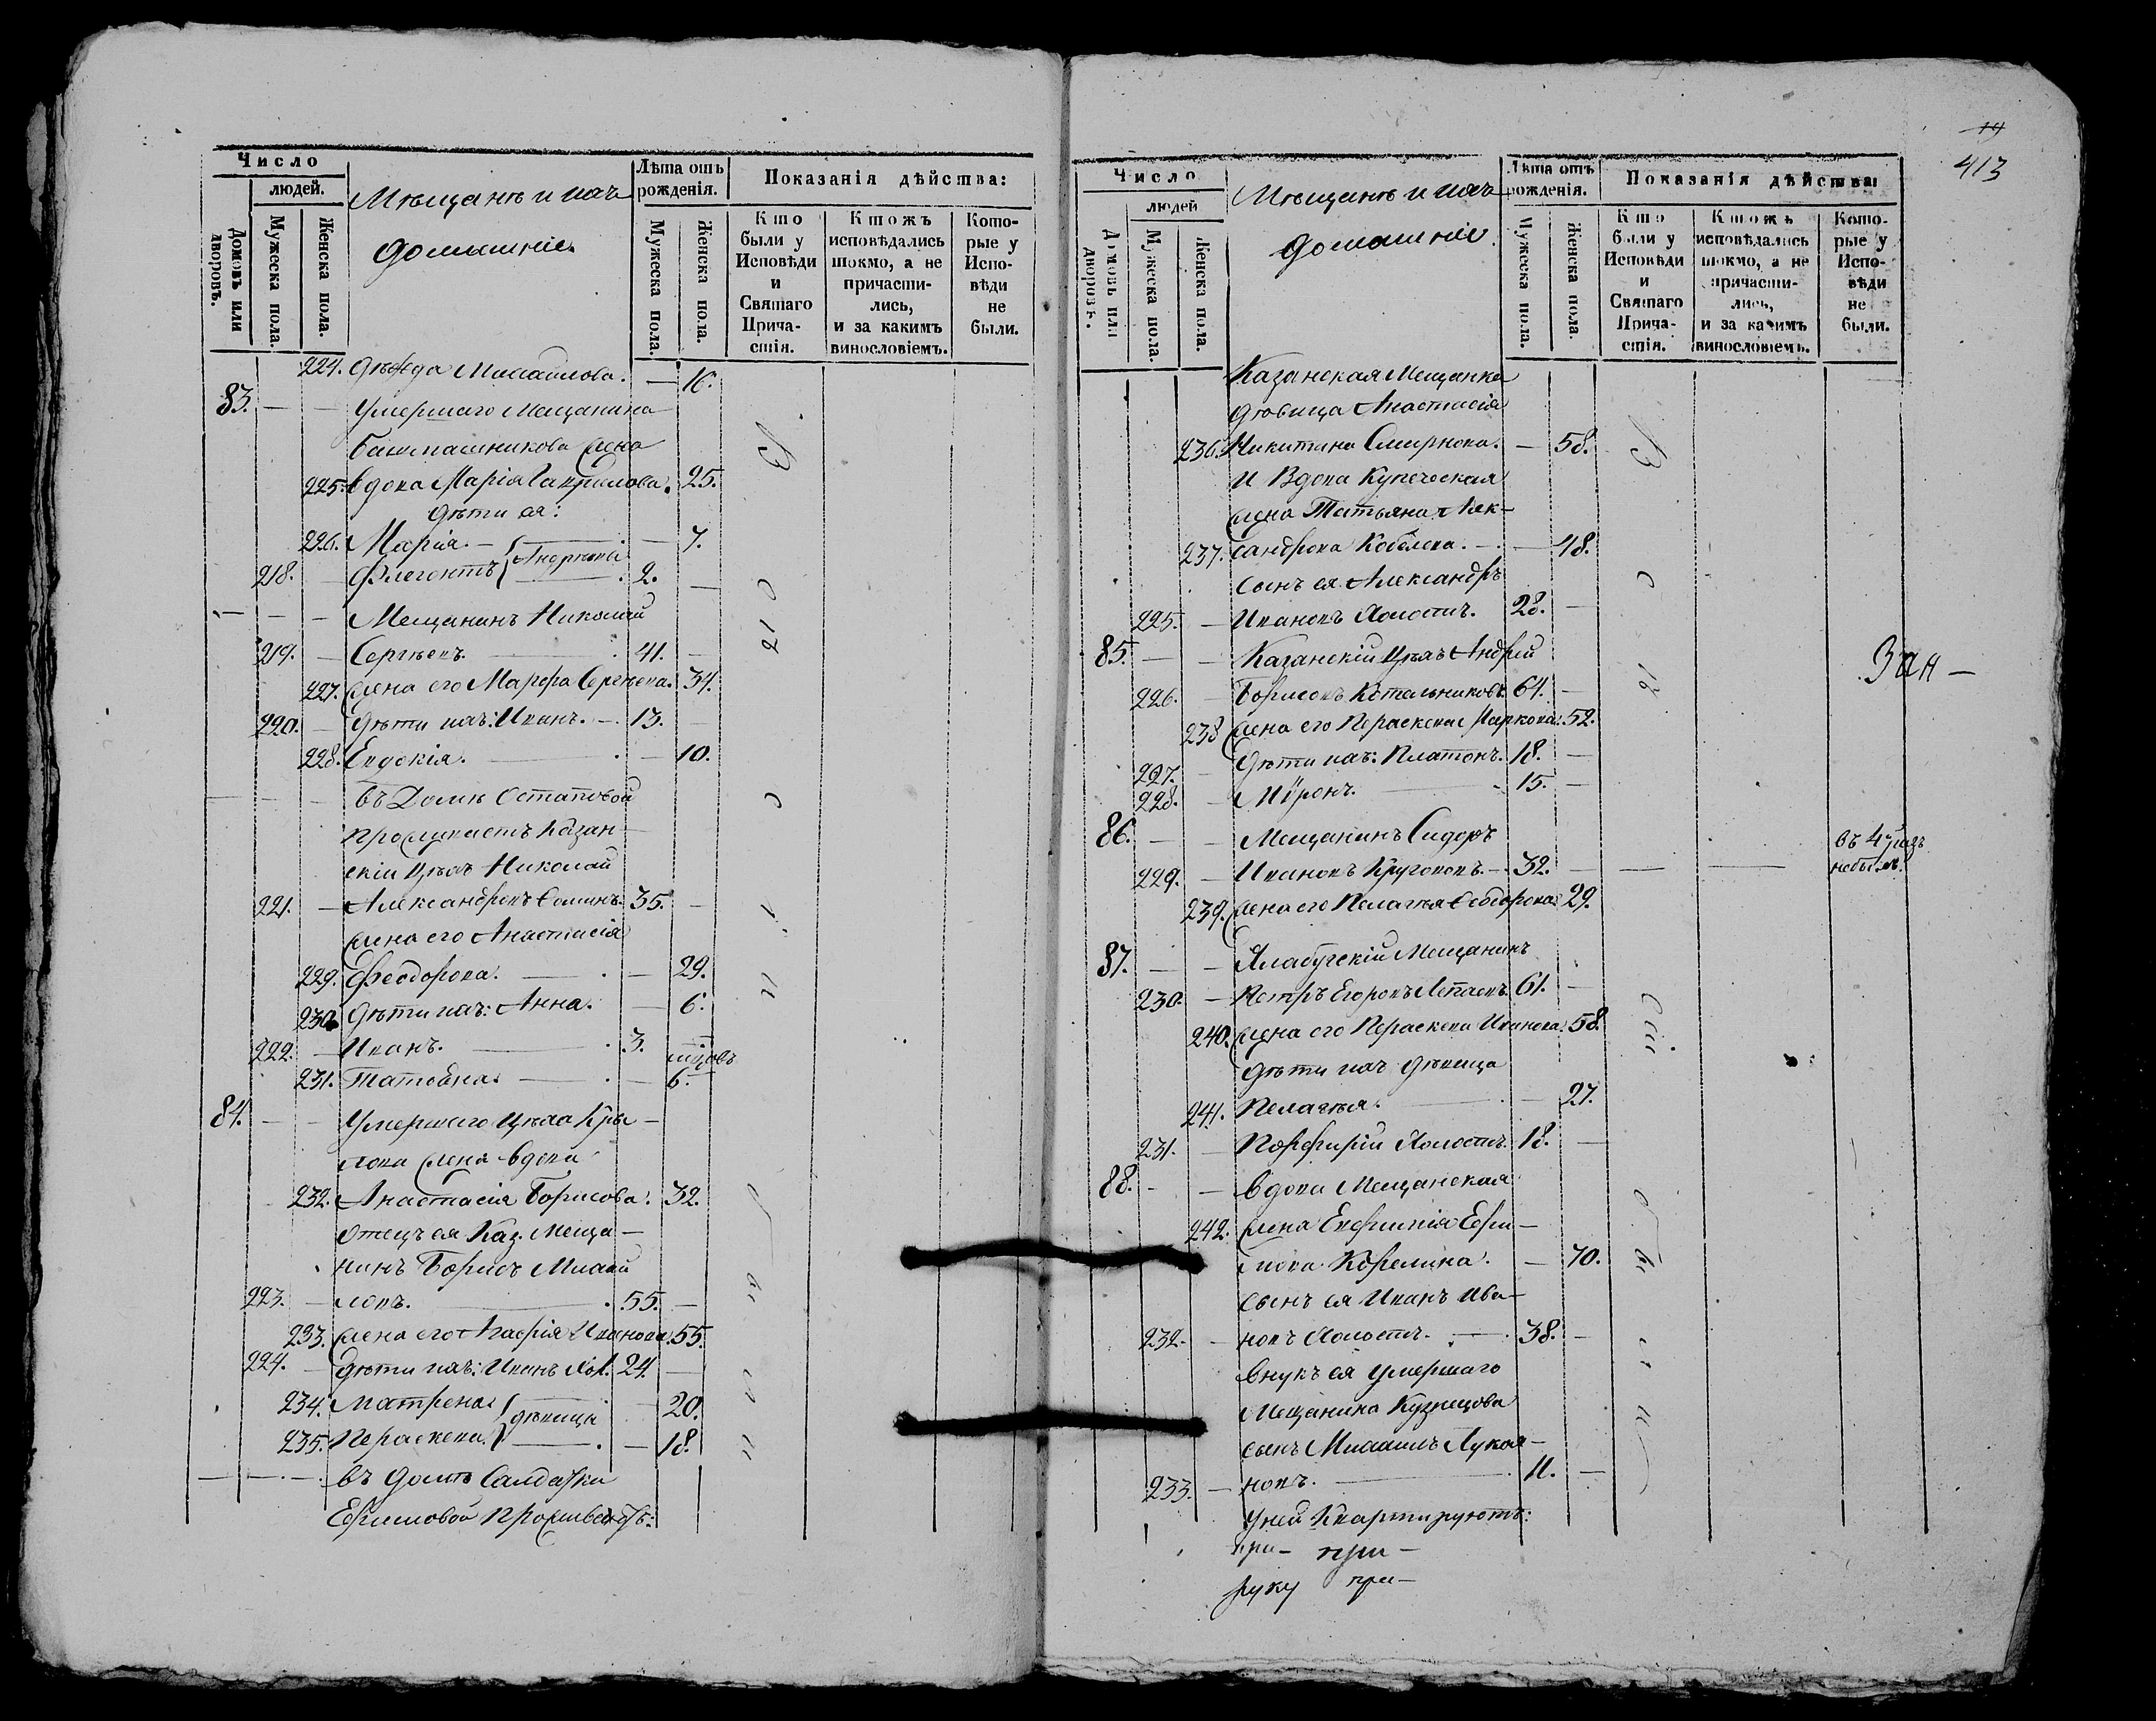 Число
людей.
Домовъ или дворовъ.
Мужеска пола.
Женска пола.
Мѣщанъ и ихъ
домашніе.
Лѣта отъ
рожденія.
Мужеска пола.
Женска пола.
Показанія дѣйства:
Кто были у Исповѣди и Святаго Причастія.
Ктожъ исповѣдались токмо, а не причастились, и за какимъ винословіемъ.
Которые у Исповѣди не были.
224. Михаилова. — 16.
83. — — Умершаго Мещанина
Башмашникова жена
225. вдова Марія Гаврилова. 25.
дѣти ея:
226. Марія. — 7.
218. — Флегонтъ Андреевы 2. —
— — — Мещанинъ Николай
219. — Сергѣевъ. 41. —
227. жена его Марфа Сергѣева. 34.
220. — дѣти ихъ: Иванъ. — 13. —
228. Евдокія. — 10.
— — — въ Домѣ Остаповой
проживаетъ Казан-
скій Цѣхъ Николай
221. — Александровъ Ѳоминъ. 35. —
жена его Анастасія
229. Феодорова. — 29.
230. дѣти ихъ: Анна. — 6.
222. — Иванъ. 3.
231. Татьяна. — 6.
84. — — Умершаго Цѣха Кры-
лова жена вдова
232. Анастасія Борисова. 32.
Отецъ ея Каз. Меща-
нинъ Борисъ Михай
223. — ловъ. 55. —
233. жена его Агафія Иванова. 55.
224. — дѣти ихъ: Иванъ Хол. 24. —
234. Матрена 20.
дѣвицы
235. Пераскева. — 18.
— — — въ домѣ Салдатки
Ефимовой проживаютъ:
19
413
Число
людей
Домовъ или дворовъ.
Мужеска пола.
Женска пола.
Мѣщанъ и ихъ
домашніе.
Лѣта отъ
рожденія.
Мужеска пола.
Женска пола.
Показанія дѣйства:
Кто были у Исповѣди и Святаго Причастія.
Ктожъ исповѣдались токмо, а не причастились, и за какимъ винословіемъ.
Которые у Исповѣди не были.
Казанская Мещанка
дѣвица Анастасія
236. Никитина Смирнова. — 58.
и Вдова Купеческая
жена Татьяна Алек-
237. сандрова Кобелева. — 48.
Сынъ ея Александръ
225. — Ивановъ Холостъ. 28. —
85. — — Казанскій Цѣхъ Андрей
226. — Борисовъ Котельниковъ 64. —
238 жена его Пераскева Маркова. 52.
227. — дѣти ихъ: Платонъ. 18. —
228. — Миронъ. 15. —
86. — — Мещанинъ Сидоръ
въ 4 разъ
229. — Ивановъ Круговъ. — 32. — — — небылъ.
239. жена его Пелагѣя Ѳеодорова 29.
87. — — Елабугскій Мещанинъ
230. — Петръ Егоровъ 61. —
240. жена его Пераскева Иванова. 58.
дѣти ихъ дѣвица
241. Пелагѣя. — 27.
231. — Порфирій Холостъ. 18. —
88. — — вдова Мещанская
242. жена Евфимія Ефи-
мова Корелина. — 70.
Сынъ ея Иванъ Ива-
232. — новъ Холостъ. — 38. —
внукъ ея умершаго
Мещанина Кузнецова
сынъ Михаилъ Лукоя-
233. — новъ. 11. —
у ней квартируютъ:
при- при-
руку при-